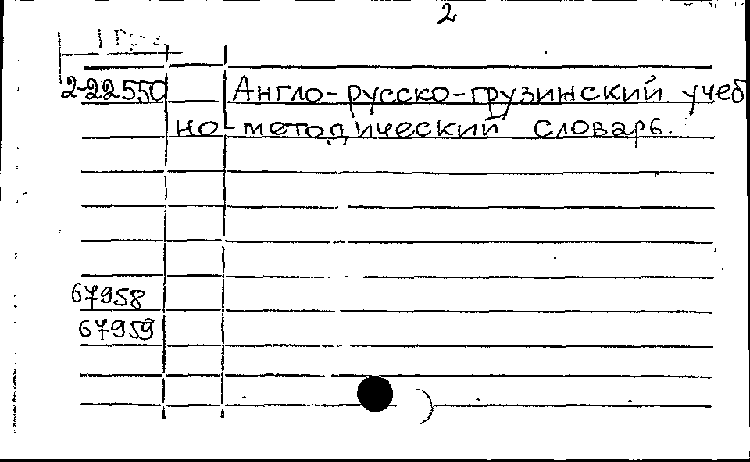 2
2-22550
Англо-русско-грузинский учеб
но-методический словарь.
67958
67959